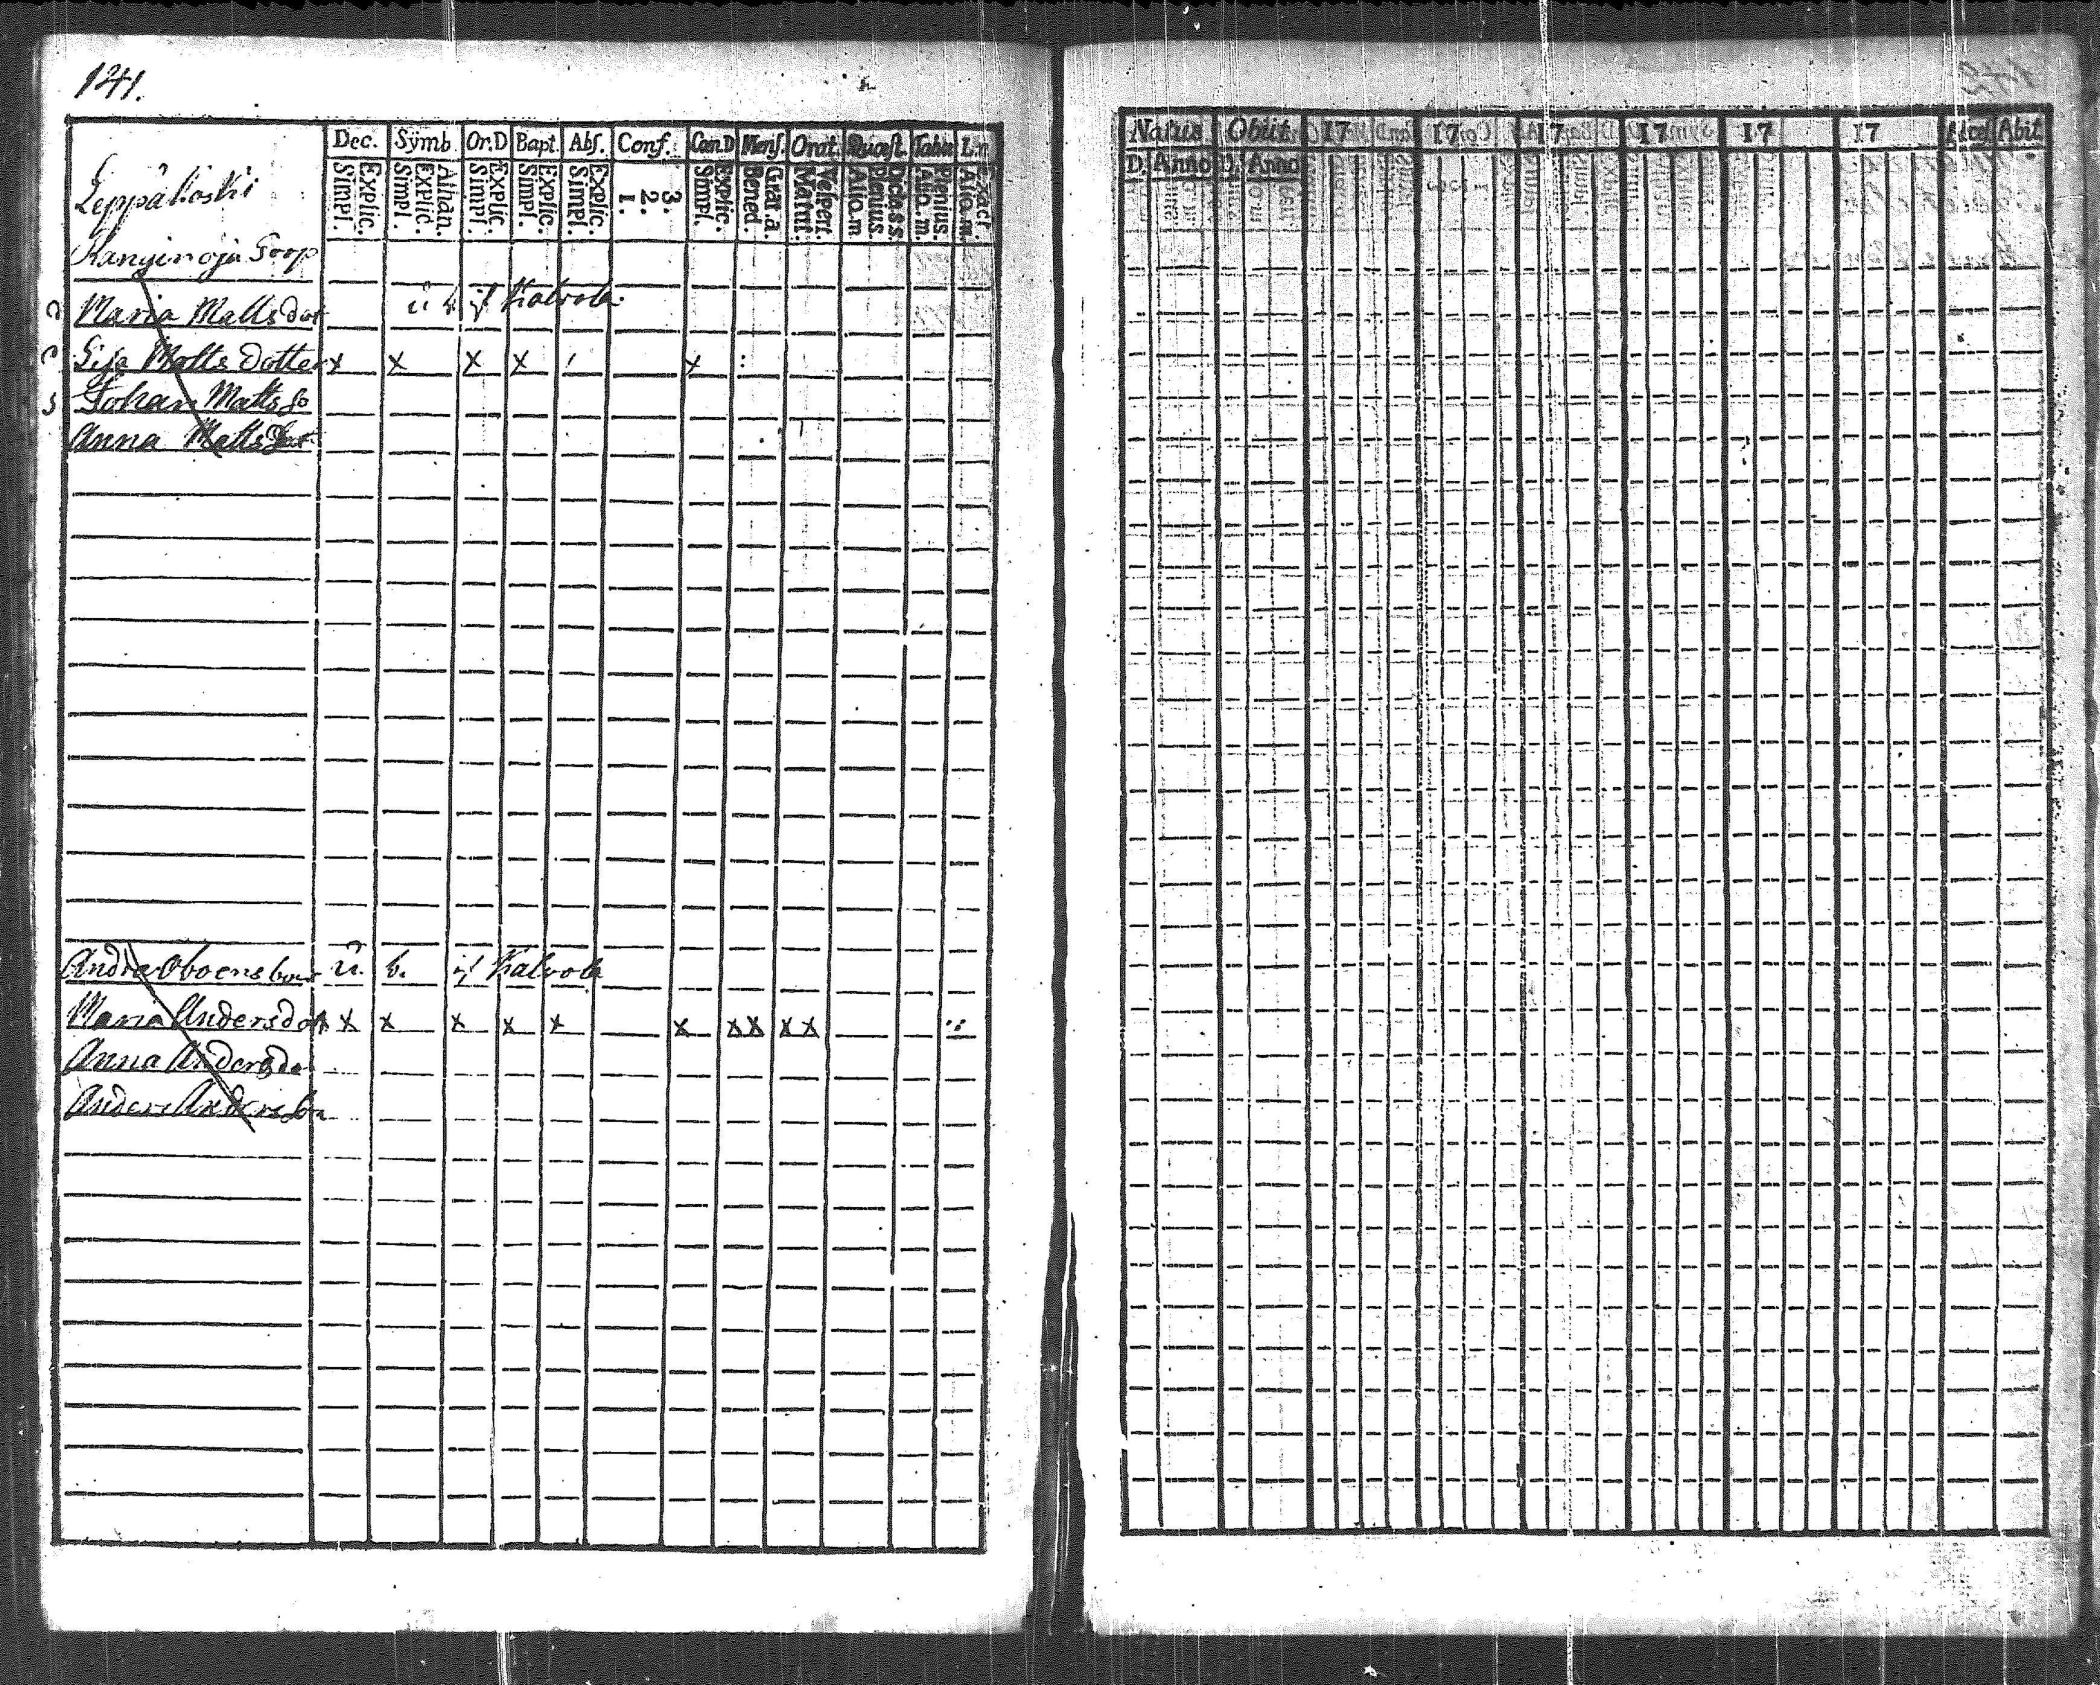 141.
Dec. Symb. Or.D Bapt. Abs. Conf. Can.D Mens. Orat. Quæst. Tabu L.n
Simpl. Explic. Simpl. Explic. Athan. Simpl. Explic. Simpl. Explic. Simpl. Explic. 1. 2. 3. Simpl. Explic. Bened. Grat. a. Matut. Vespert. Alio. m Plenius. Dict. a s. s. Alio. m. Plenius. Alio. m. Exact.
Leppäkoski
Maria Mattsdot ü b. if Kalvola.
Lisa Matts dotter x x x x x
Johan Matts so
Anna Matts dot
ü. b. if Kalvola
Maria Andersdott x x x x x x x x x x
Anna Andersdo
Anders Andersson
Natus Obiit 17 17 17 17 17 17 Acces Abit
D. Anno D. Anno